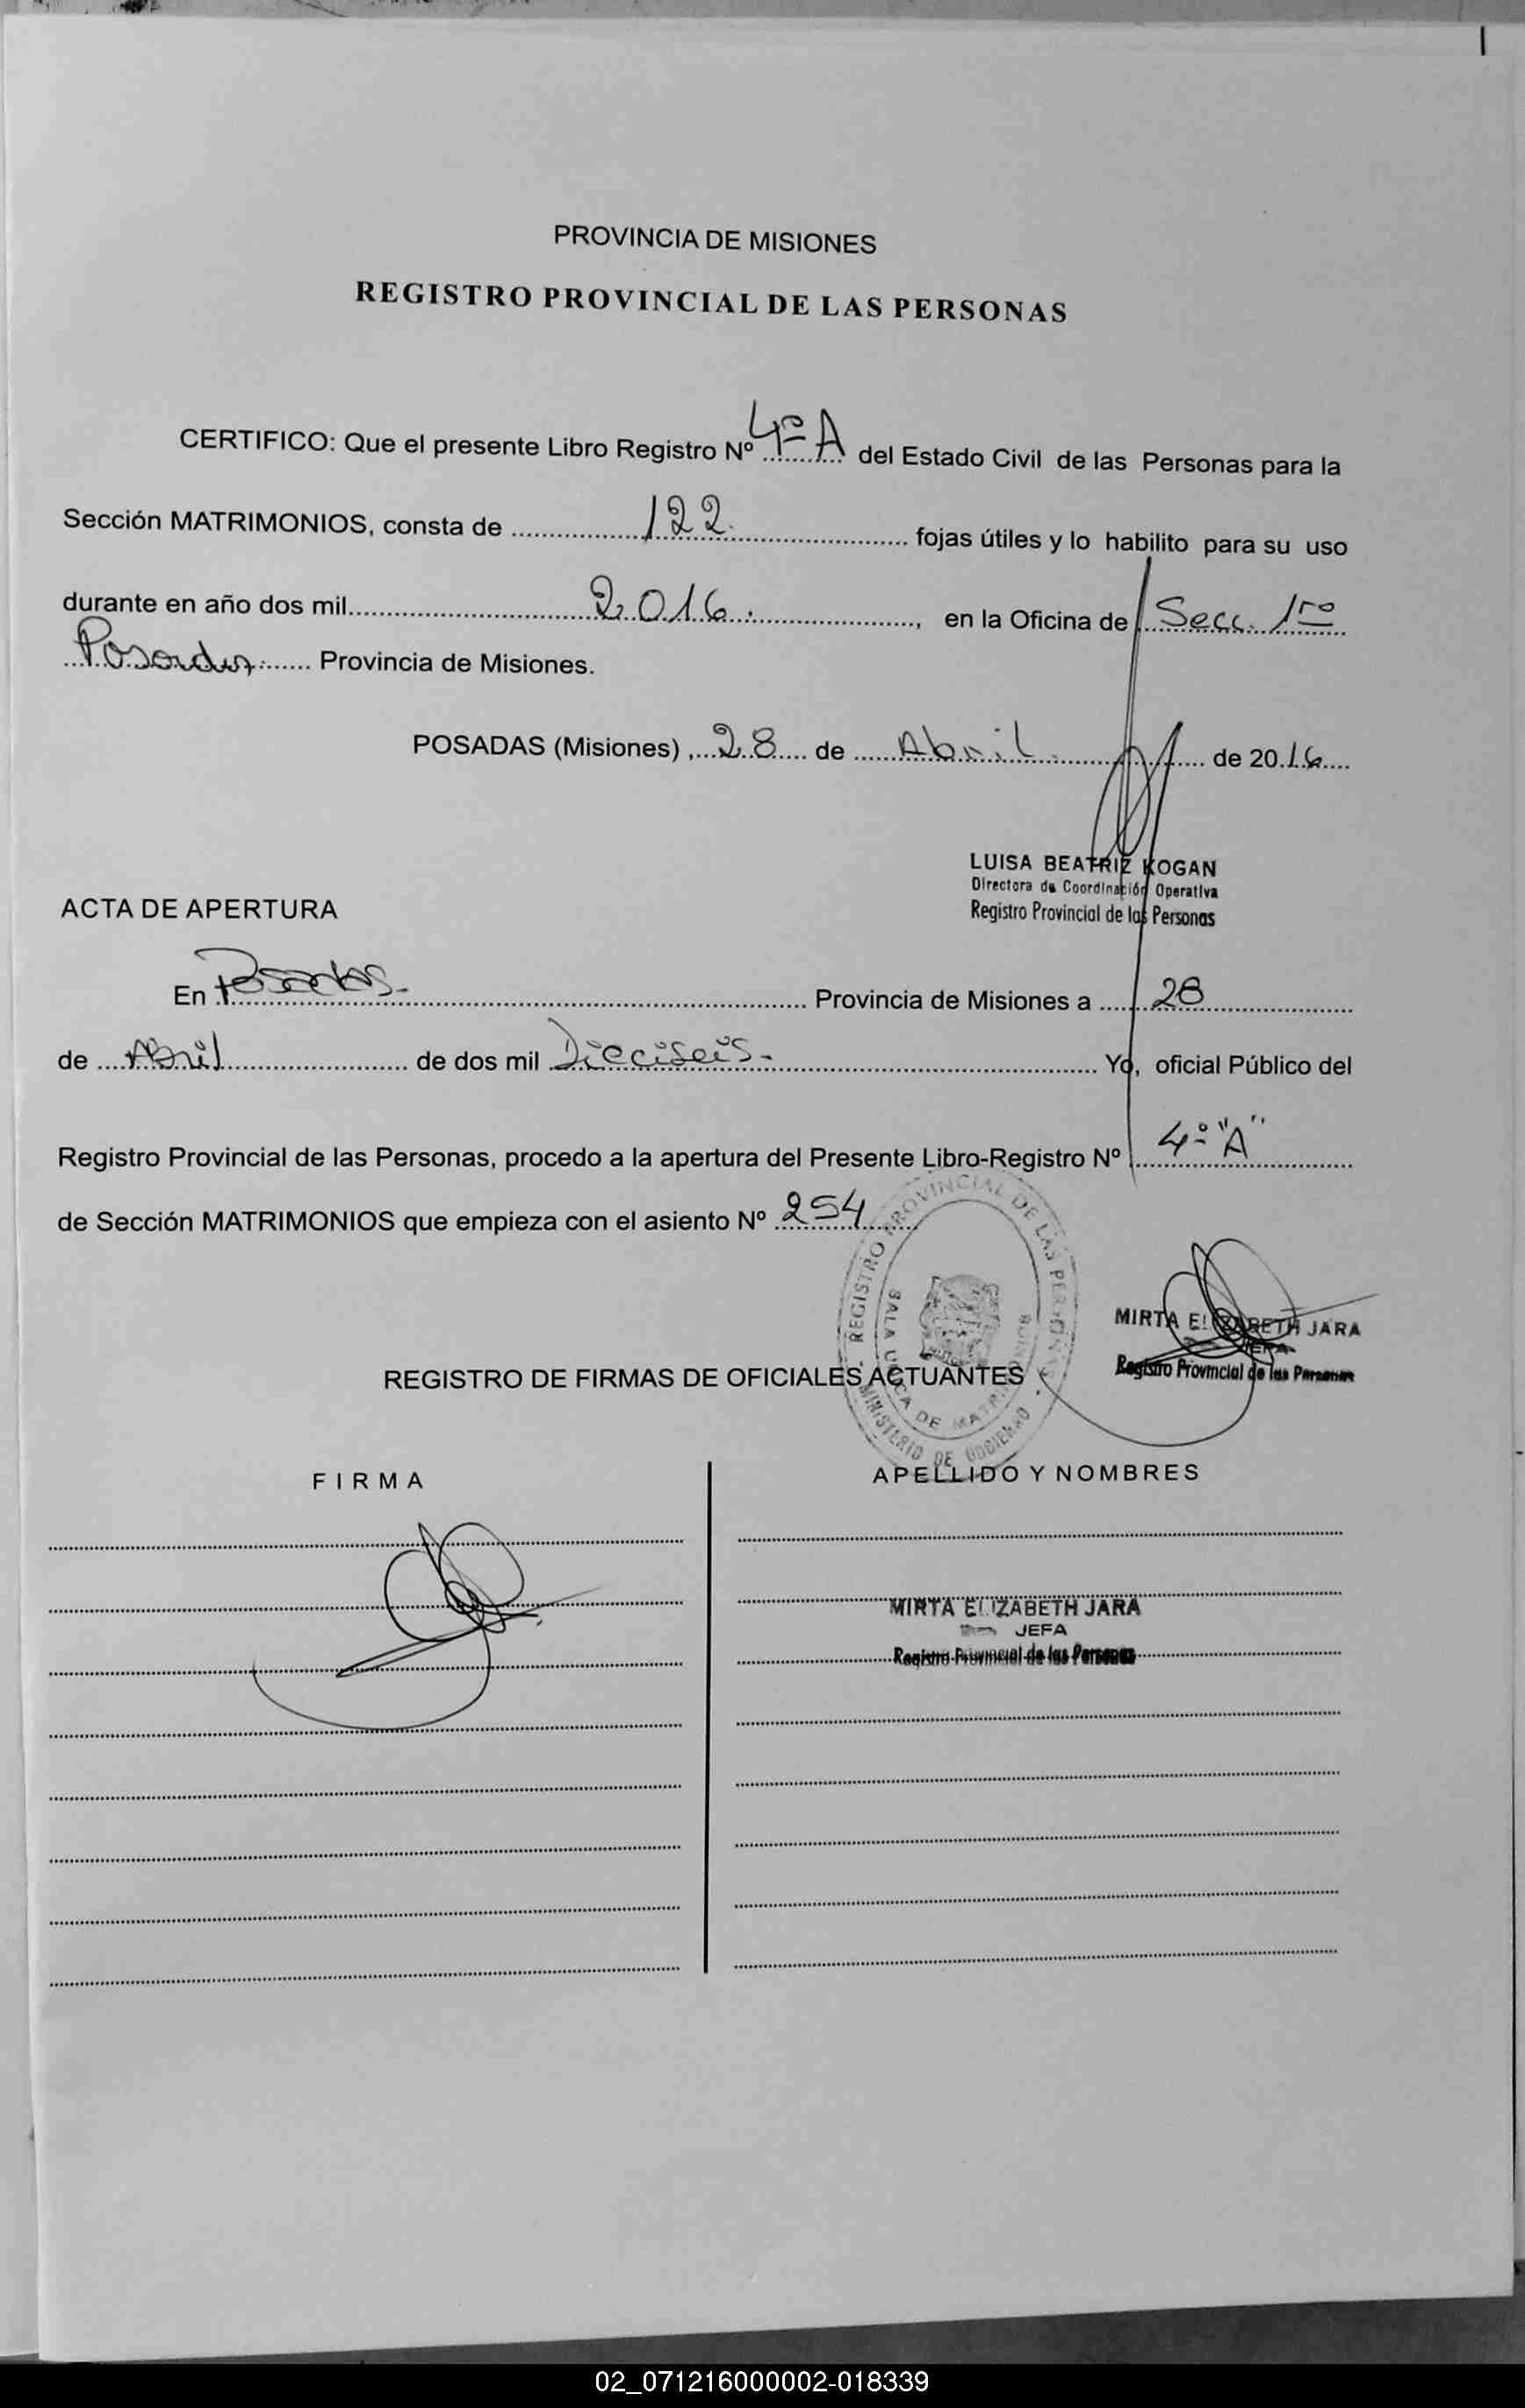 PROVINCIA DE MISIONES
REGISTRO PROVINCIAL DE LAS PERSONAS
CERTIFICO: Que el presente Libro Registro Nº 4º A del Estado Civil de las Personas para la
Sección MATRIMONIOS, consta de 122 fojas útiles y lo habilito para su uso
durante en año dos mil 2016 , en la Oficina de Secc. 1ro
Posadas Provincia de Misiones.
POSADAS (Misiones) , 28 de Abril de 2016
LUISA BEATRIZ KOGAN
Directora de Coordinación Operativa
Registro Provincial de las Personas
ACTA DE APERTURA
En Posadas.- Provincia de Misiones a 28
de Abril de dos mil Dieciseis.- Yo, oficial Público del
Registro Provincial de las Personas, procedo a la apertura del Presente Libro-Registro Nº 4º "A"
de Sección MATRIMONIOS que empieza con el asiento Nº 254
REGISTRO PROVINCIAL DE LAS PERSONAS
SALA UNICA DE MATRIMONIOS
MINISTERIO DE GOBIERNO
MIRTA ELIZABETH JARA
JEFA
Registro Provincial de las Personas
REGISTRO DE FIRMAS DE OFICIALES ACTUANTES
FIRMA APELLIDO Y NOMBRES
MIRTA ELIZABETH JARA
JEFA
Registro Provincial de las Personas
02_071216000002-018339